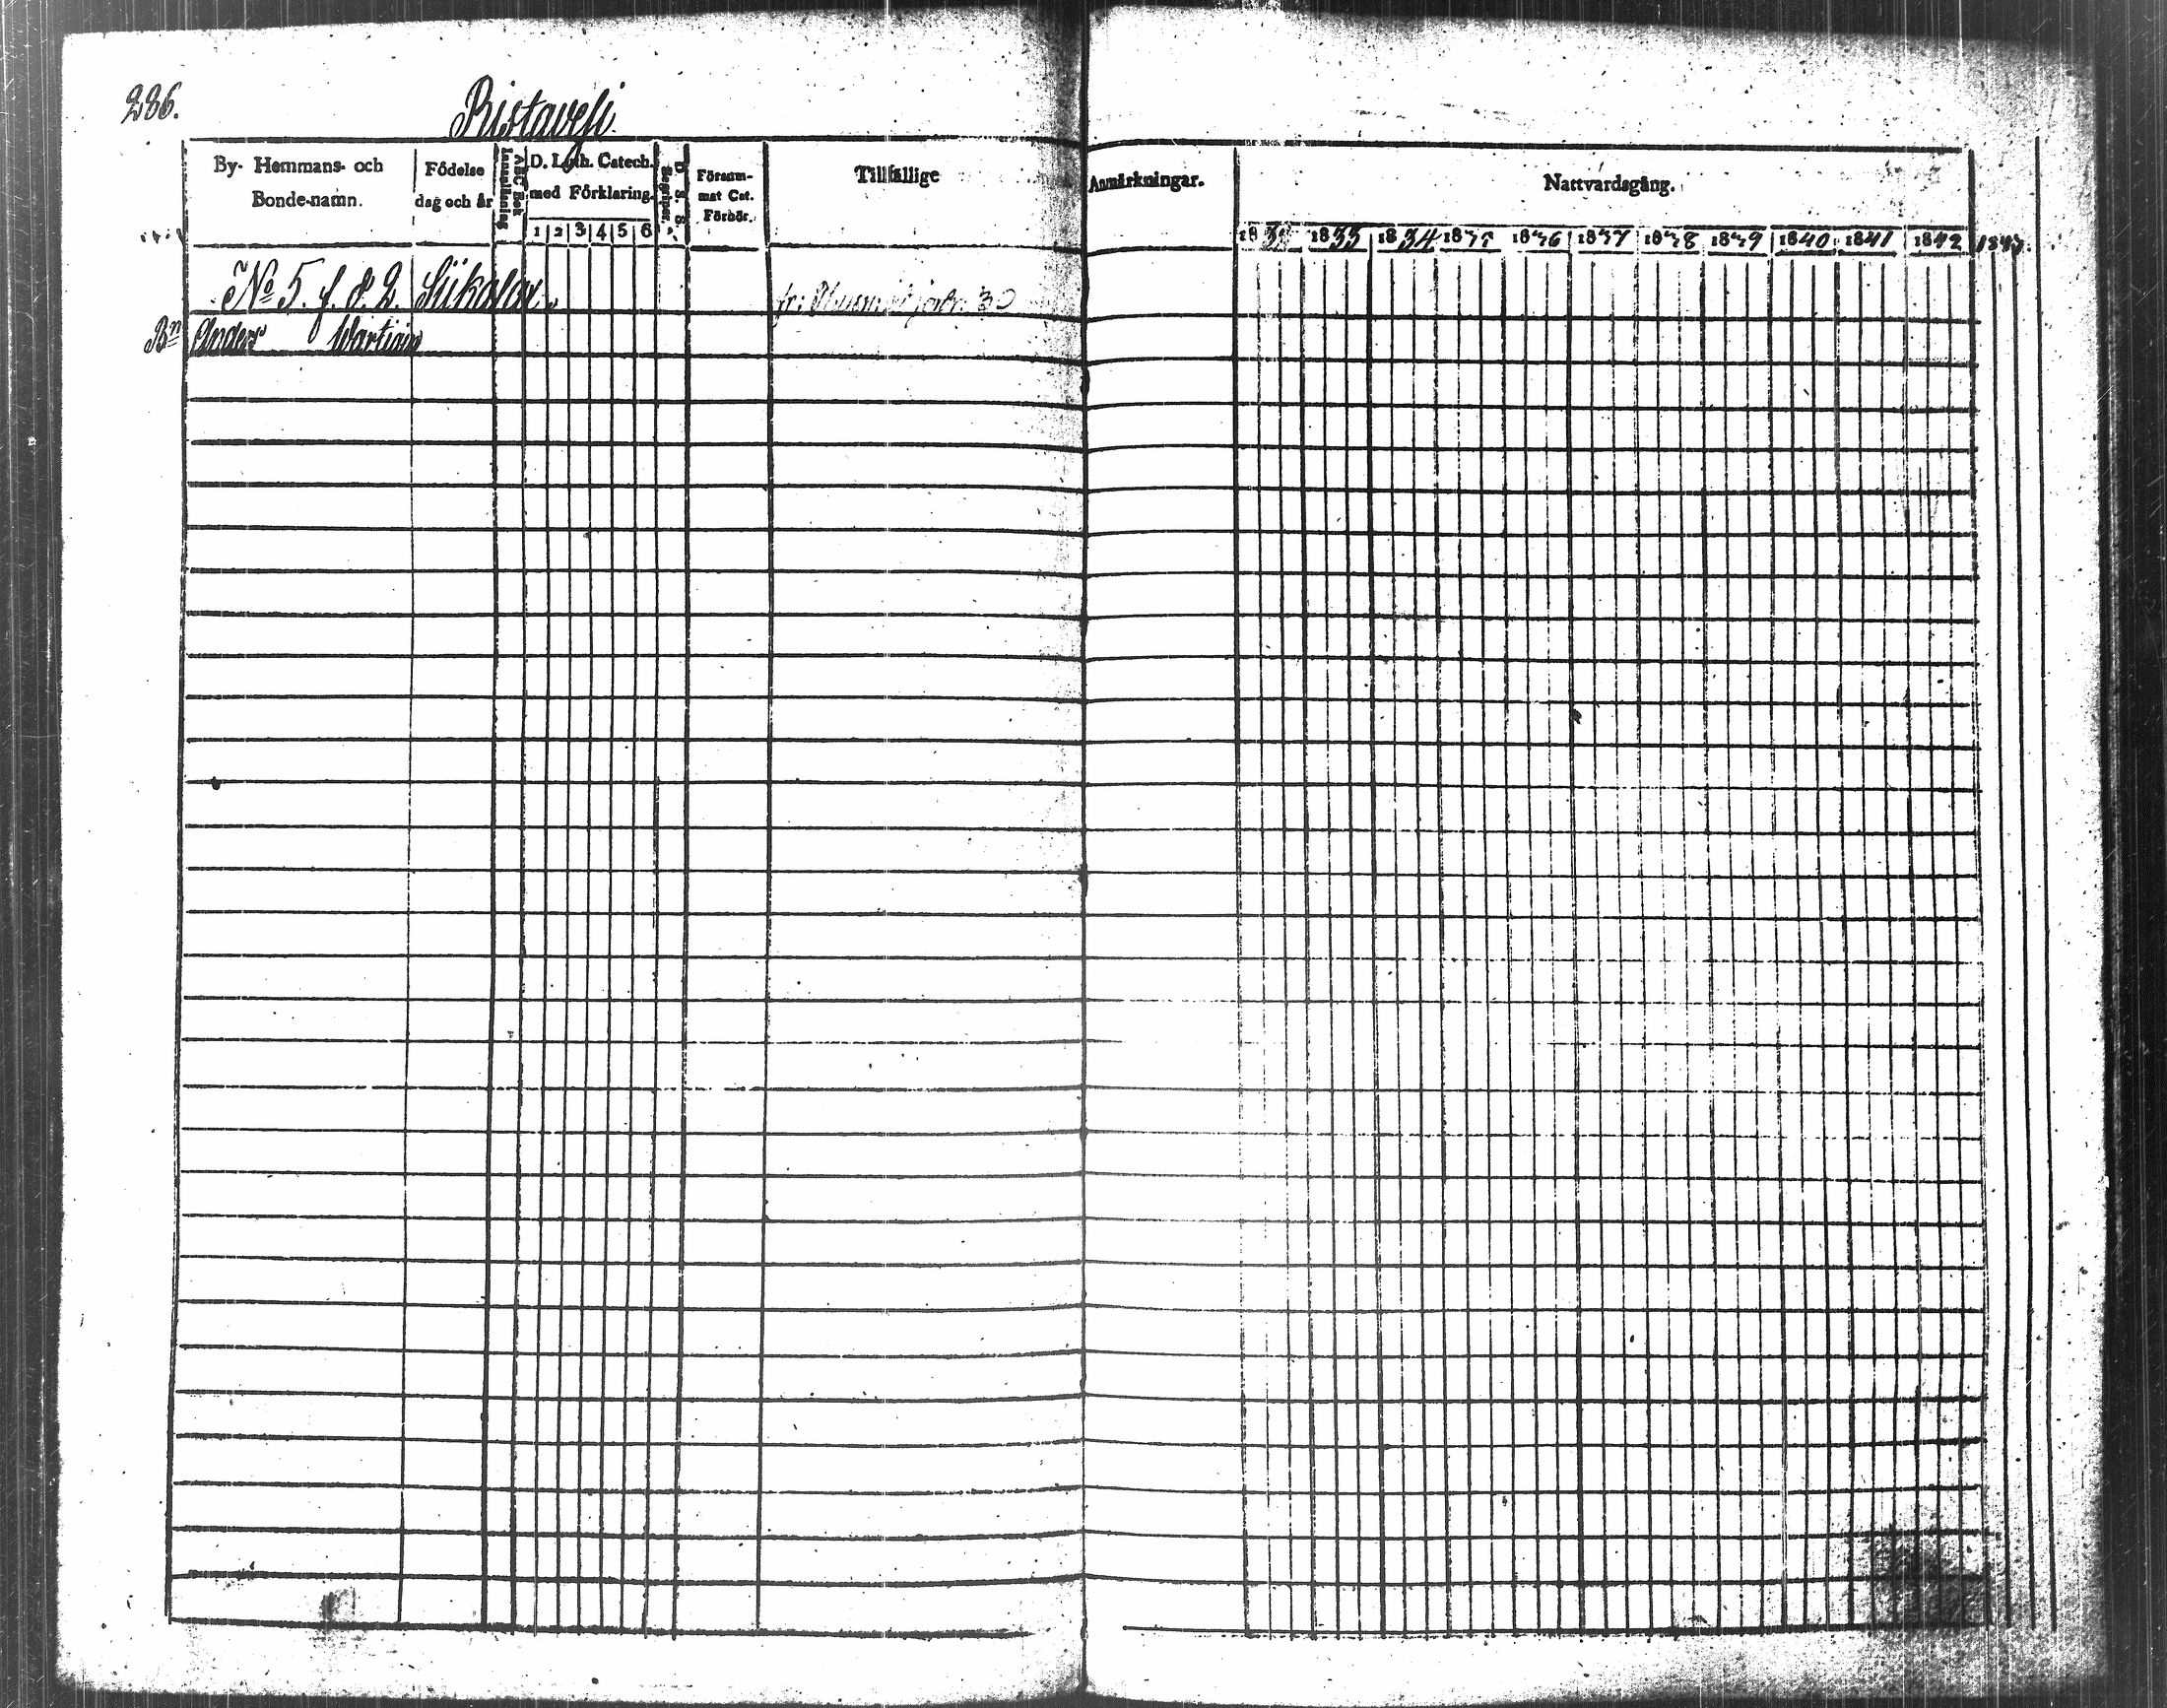 286.
Ristavesi
By- Hemmans- och
Bonde-namn.
Födelse
dag och år
ABC Bok
Innanläsning
D. Luth. Catech.
med Förklaring.
1 2 3 4 5 6
D. S. S.
Begriper.
Försum-
mat Cat.
Förhör.
Tillfällige
Anmärkningar.
Nattvardsgång.
1832 1833 1834 1835 1836 1837 1838 1839 1840 1841 1842 1843
No 5. f. d. 2. Siikalax
fr: 30
Bn Anders Wartiain